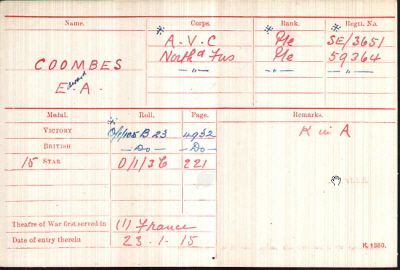 Name. Corps. Rank. Regtl. No.
* A.V.C * Pte SE/3651
COOMBES North'd Fus Pte 59364
Edward —„— —„—
E. A.
Medal. Roll. Page. Remarks.
VICTORY * B 23 4932 K in A
BRITISH —Do— —Do—
15 STAR O/1/3C 221
Theatre of War first served in (1) France
Date of entry therein 23.1.15 K. 1380.